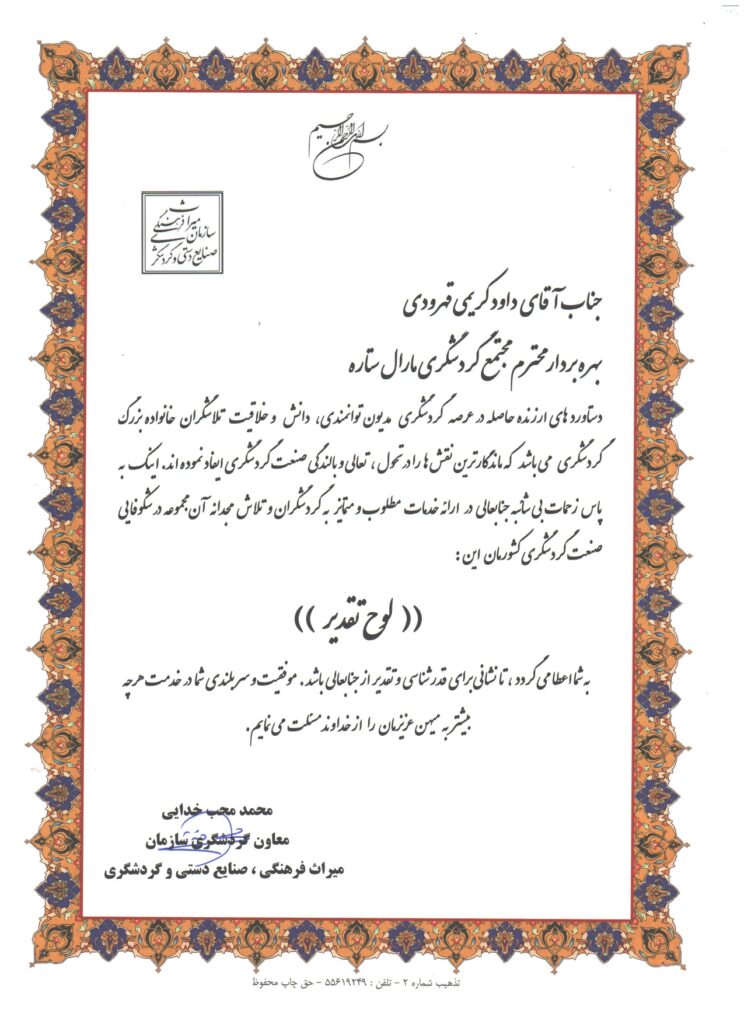 بسم الله الرحمن الرحیم
سازمان میراث فرهنگی
صنایع دستی و گردشگری
جناب آقای داود کریمی قهرودی
بهره بردار محترم مجتمع گردشگری مارال ستاره
دستاورد های ارزنده حاصله در عرصه گردشگری مدیون توانمندی، دانش و خلاقیت تلاشگران خانواده بزرگ
گردشگری می باشد که ماندگارترین نقش ها را در تحول ، تعالی و بالندگی صنعت گردشگری ایفاد نموده اند. اینک به
پاس زحمات بی شائبه جنابعالی در ارائه خدمات مطلوب و متمایز به گردشگران و تلاش مجدانه آن مجموعه در شکوفایی
صنعت گردشگری کشورمان این :
(( لوح تقدیر ))
به شما اعطا می گردد ، تا نشانی برای قدرشناسی و تقدیر از جنابعالی باشد . موفقیت و سربلندی شما در خدمت هرچه
بیشتر به میهن عزیزمان را از خداوند مسئلت می نمایم.
محمد محب خدایی
معاون گردشگری سازمان
میراث فرهنگی ، صنایع دستی و گردشگری
تذهیب شماره ۲ - تلفن : ۵۵۶۱۹۲۴۹ - حق چاپ محفوظ